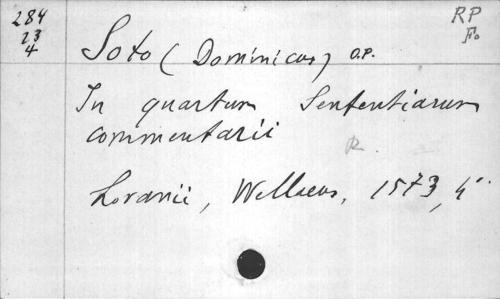 284
23
4
RP
Fo
Soto (Dominicus) O.P.
In quartum Sententiarum
commentarii
R.
Lovanii, Wellaeus, 1573, 4°.